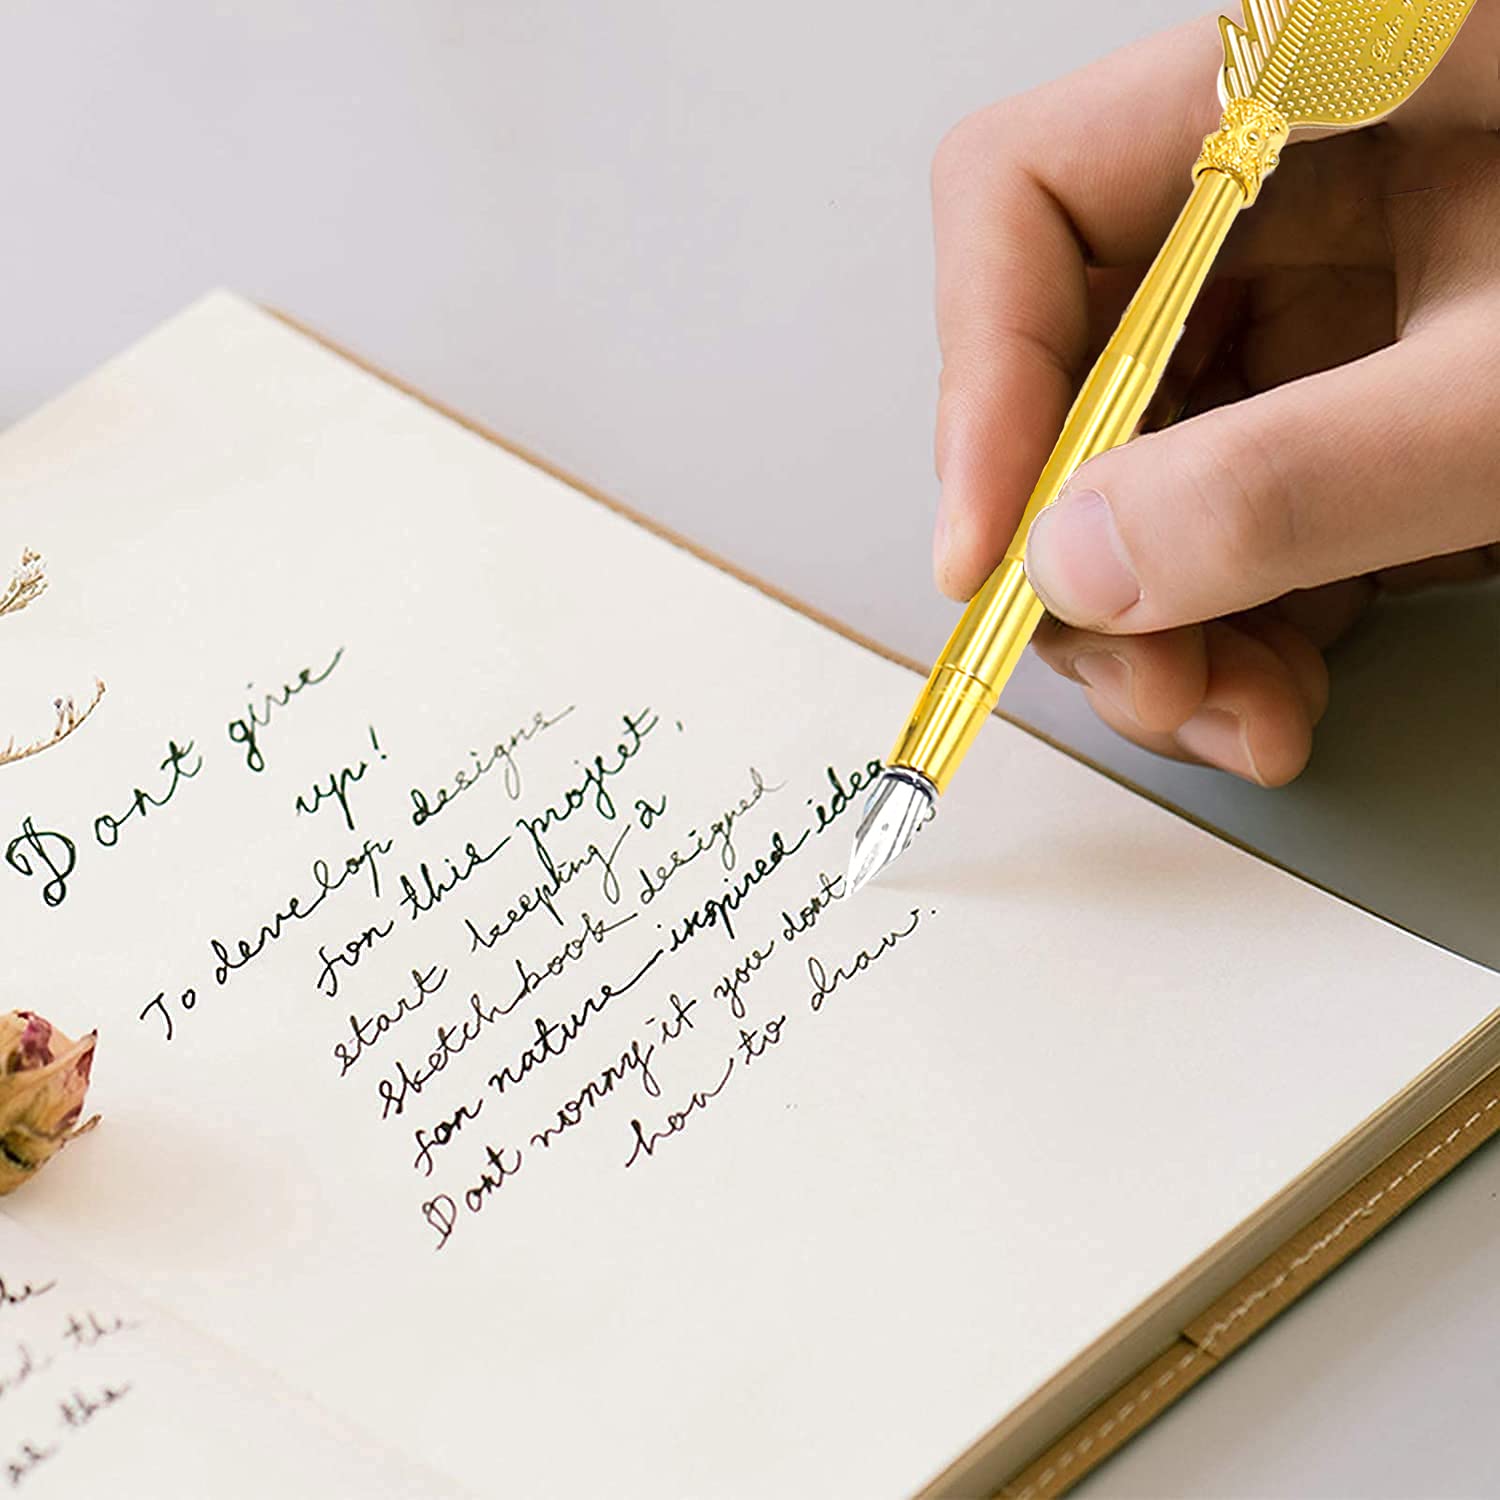 Dont give
up!
To develop designs
for this project,
start keeping a
sketchbook designed
for nature-inspired idea
Dont worry if you dont
how to draw.
the
the
as the